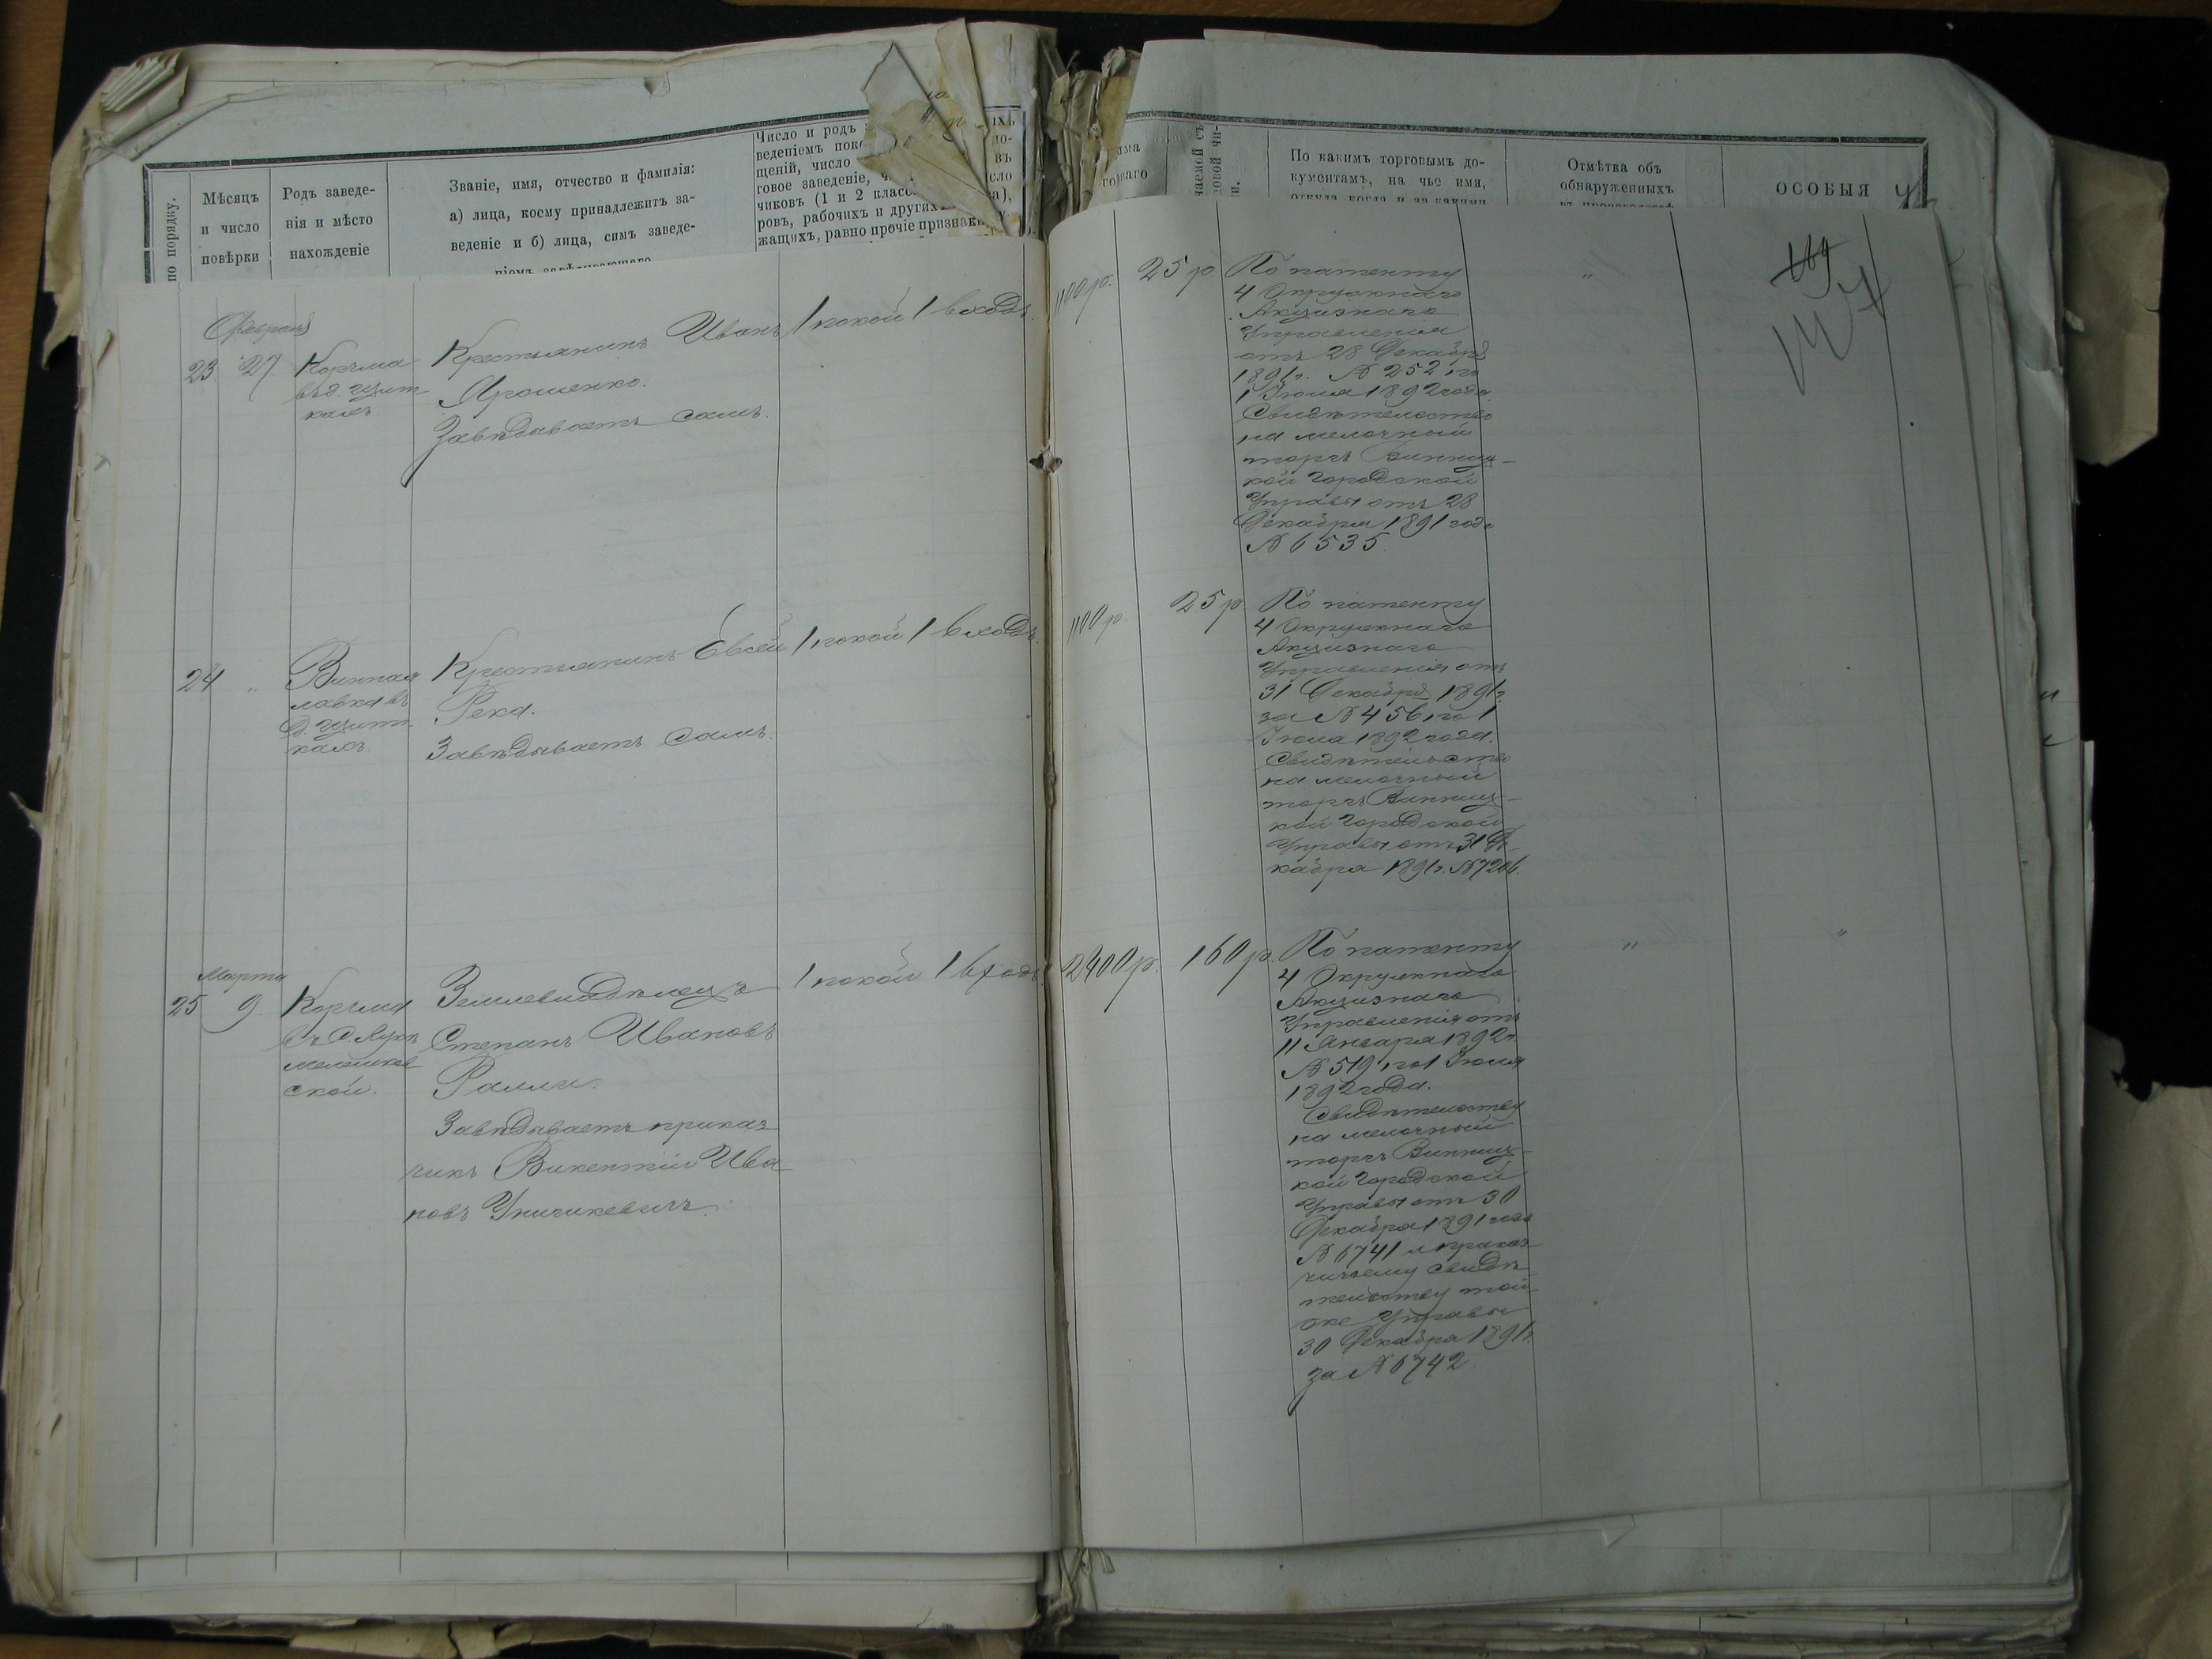 по порядку.
Мѣсяцъ
и число
повѣрки
Родъ заведе-
нія и мѣсто
нахожденіе
Званіе, имя, отчество и фамилія:
а) лица, коему принадлежитъ за-
веденіе и б) лица, симъ заведе-
ніемъ
Число и родъ
веденіемъ
щеній, число
говое заведеніе,
чиковъ (1 и 2
ровъ, рабочихъ и другихъ
жащихъ, равно прочіе признаки
По какимъ торговымъ до-
кументамъ, на чье имя,
откуда когда и за какими
Отмѣтка объ
обнаруженныхъ
ОСОБЫЯ
Февраля
23 27 Корчма
въ д.
Крестьянинъ Иванъ
Ярошенко.
Завѣдываетъ самъ.
1 покой 1 входъ.
1100 р. 25 р.
По патенту
4 Окружнаго
Акцизнаго
Управленія
отъ 28 Декабря
1891 г. № 252 по
1 Іюля 1892 года.
Свидѣтельство
на мелочный
торгъ Винниц-
кой Городской
Управы отъ 28
Декабря 1891 года
№ 6535.
"
24 " Винная
лавка въ
д.
Крестьянинъ Евсей
Река.
Завѣдываетъ самъ.
1 покой 1 входъ.
1100 р. 25 р
По патенту
4 Окружнаго
Акцизнаго
Управленія отъ
31 Декабря 1891 г.
за № 456 по 1
Іюля 1892 года.
Свидѣтельство
на мелочный
торгъ Винниц-
кой Городской
Управы отъ 31 Де-
кабря 1891 г. № 7206.
Марта
25 9. Корчма
въ с. Лукѣ
Мелешков
ской.
Землевладѣлецъ
Степанъ Ивановъ
Ралли.
Завѣдываетъ приказ
чикъ Викентій Ива
новъ
1 покой 1 входъ.
2400 р. 160 р.
По патенту
4 Окружнаго
Акцизнаго
Управленія отъ
11 Января 1892 г.
№ 519 по 1 Іюля
1892 года.
Свидѣтельству
на мелочный
торгъ Винниц-
кой Городской
Управы отъ 30
Декабря 1891 года
№ 6741 и приказ-
чичьему свидѣ-
тельству той-
же Управы
30 Декабря 1891 г.
за № 6742.
" "